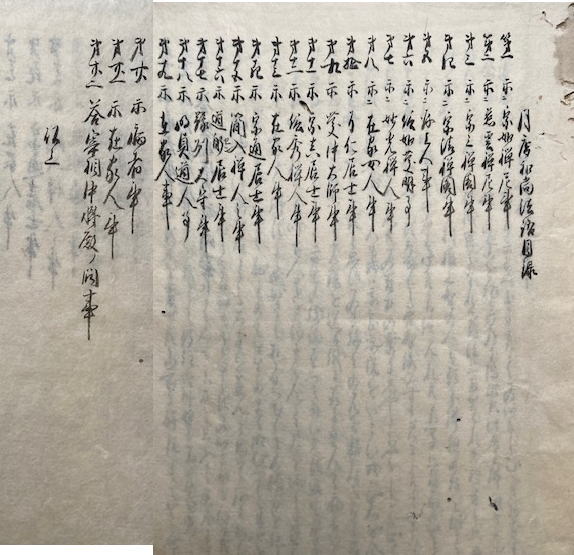 月庵和尚法語目録
第一 示宗如禅尼事
第二 示慧雲禅尼事
第三 示宗三禅閤事
第四 示宗滴禅閤事
第五 示 上人事
第六 示 大姉事
第七 示妙光禅人事
第八 示在家女人事
第九 示了仁居士事
第十 示 仲大師事
第十一 示宗真居士事
第十二 示 秀禅人事
第十三 示在家人事
第十四 示宗通居士事
第十五 示簡入禅人事
第十六 示通 居士事
第十七 示 太守事
第十八 示明貞道人事
第十九 示在家人事
第廿 示病者事
第廿一 示在家人事
第廿二 答宰相中将殿ノ問事
以上